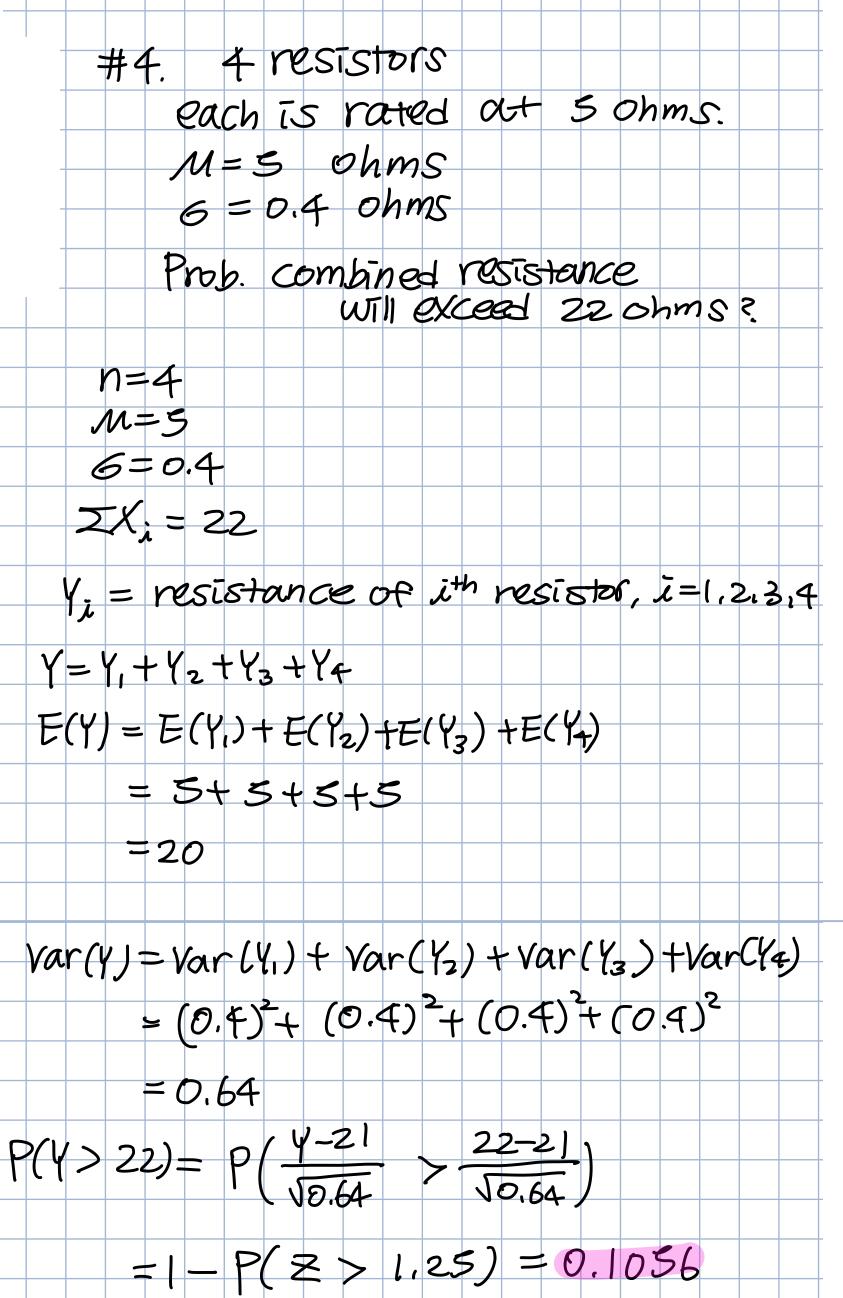 #4. 4 resistors
each is rated at 5 ohms.
μ = 5 ohms
σ = 0.4 ohms
Prob. combined resistance
will exceed 22 ohms?
n=4
μ=5
σ=0.4
ΣXᵢ = 22
Yᵢ = resistance of iᵗʰ resistor, i=1,2,3,4
Y=Y₁+Y₂+Y₃+Y₄
E(Y) = E(Y₁)+E(Y₂)+E(Y₃)+E(Y₄)
= 5+5+5+5
=20
Var(Y)=Var(Y₁)+Var(Y₂)+Var(Y₃)+Var(Y₄)
= (0.4)²+(0.4)²+(0.4)²+(0.4)²
= 0.64
P(Y > 22)= P(Y-21/√0.64 > 22-21/√0.64)
=1-P(Z > 1.25) = 0.1056